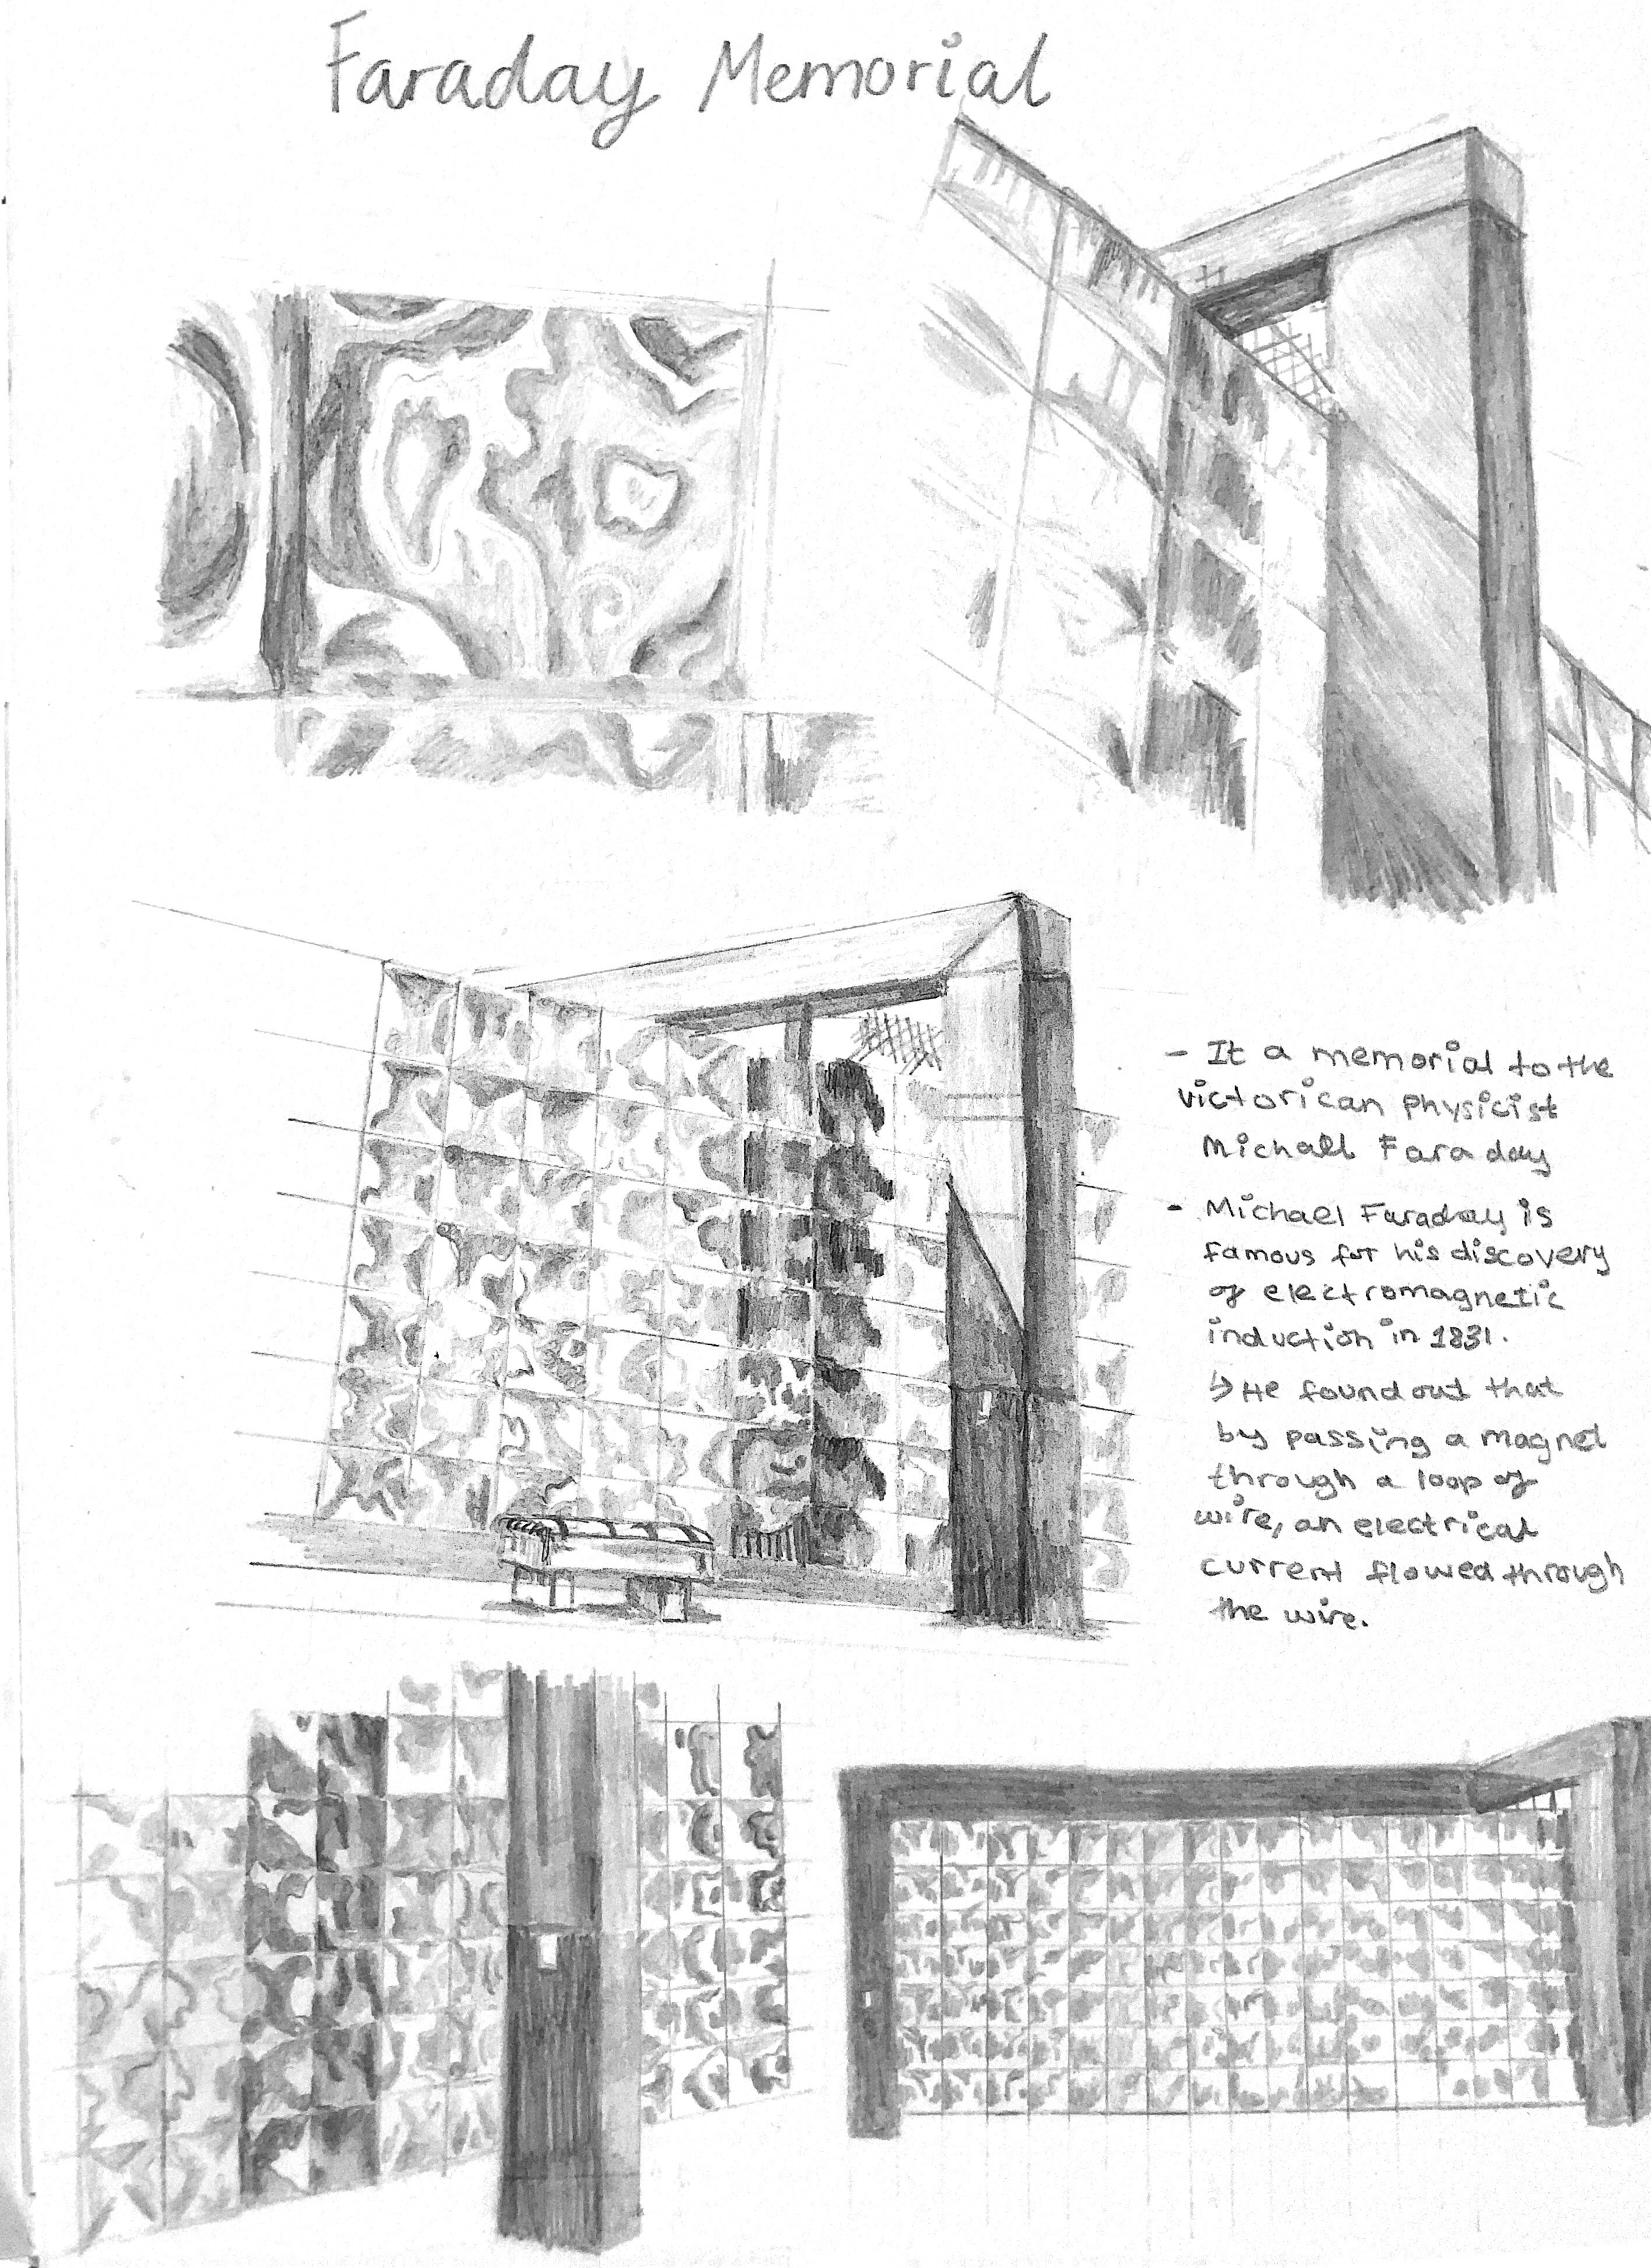 Faraday Memorial
- It a memorial to the
victorican physicist
Michall Faraday
- Michael Faraday is
famous for his discovery
of electromagnetic
induction in 1831.
↳ He found out that
by passing a magnet
through a loop of
wire, an electrical
current flowed through
the wire.